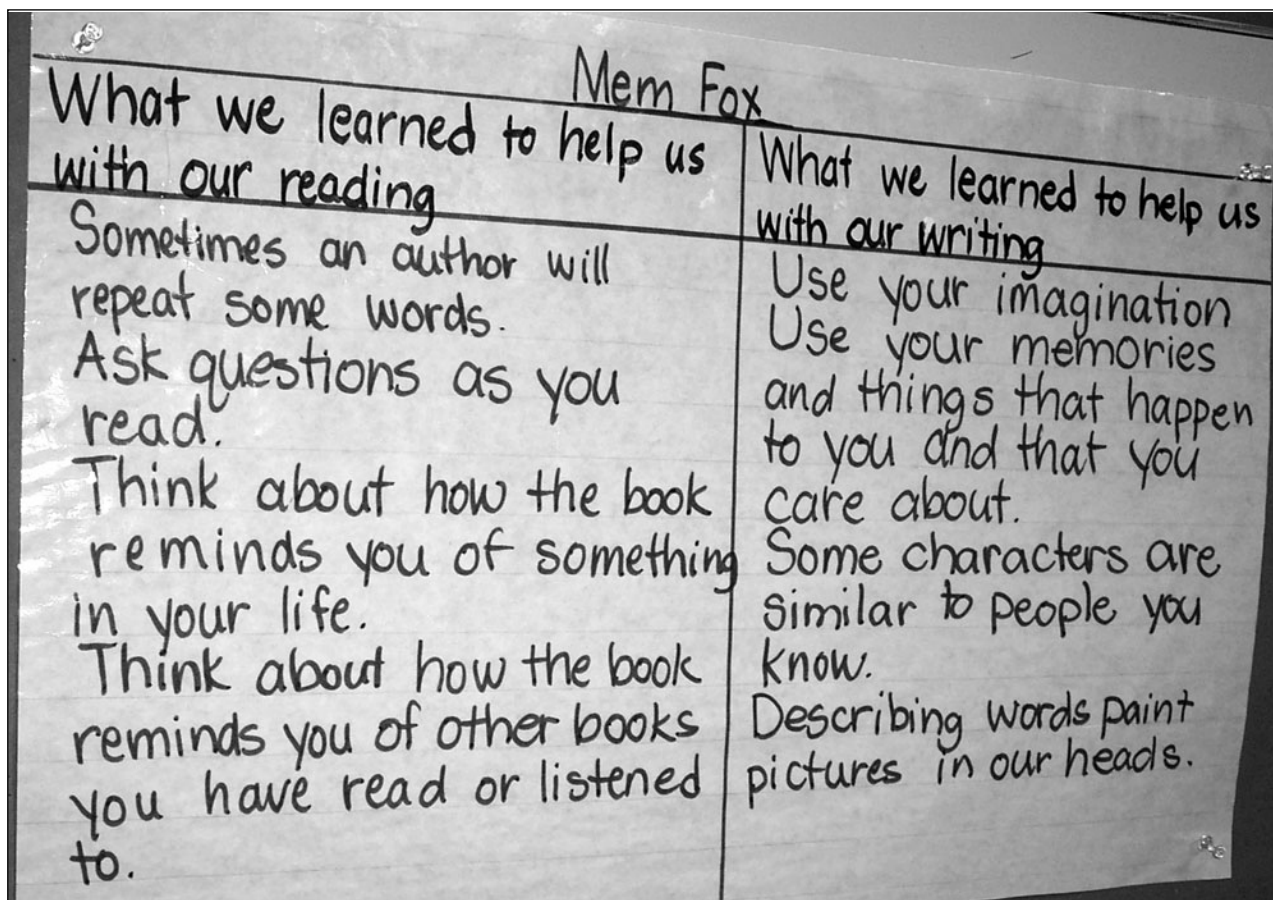 Mem Fox
What we learned to help us
with our reading
Sometimes an author will
repeat some words.
Ask questions as you
read.
Think about how the book
reminds you of something
in your life.
Think about how the book
reminds you of other books
you have read or listened
to.
What we learned to help us
with our writing
Use your imagination
Use your memories
and things that happen
to you and that you
care about.
Some characters are
similar to people you
know.
Describing words paint
pictures in our heads.